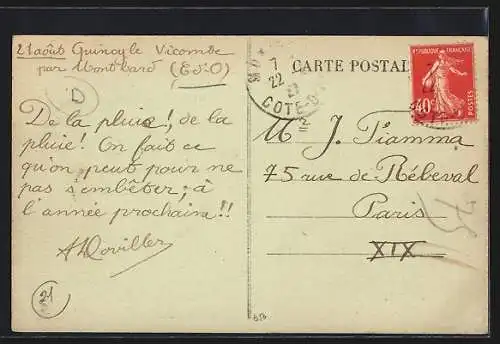 21 août Quincy le Vicomte
par Montbard (Cd'O)
D
De la pluie!, de la
pluie! On fait ce
qu'on peut pour ne
pas s'embêter; à
l'année prochaine!!
21
CARTE POSTALE
REPUBLIQUE FRANÇAISE
40c
POSTES
7
22
27
COTE-D'
M J. Fiamma
75 rue de Rébeval
Paris
XIX
75